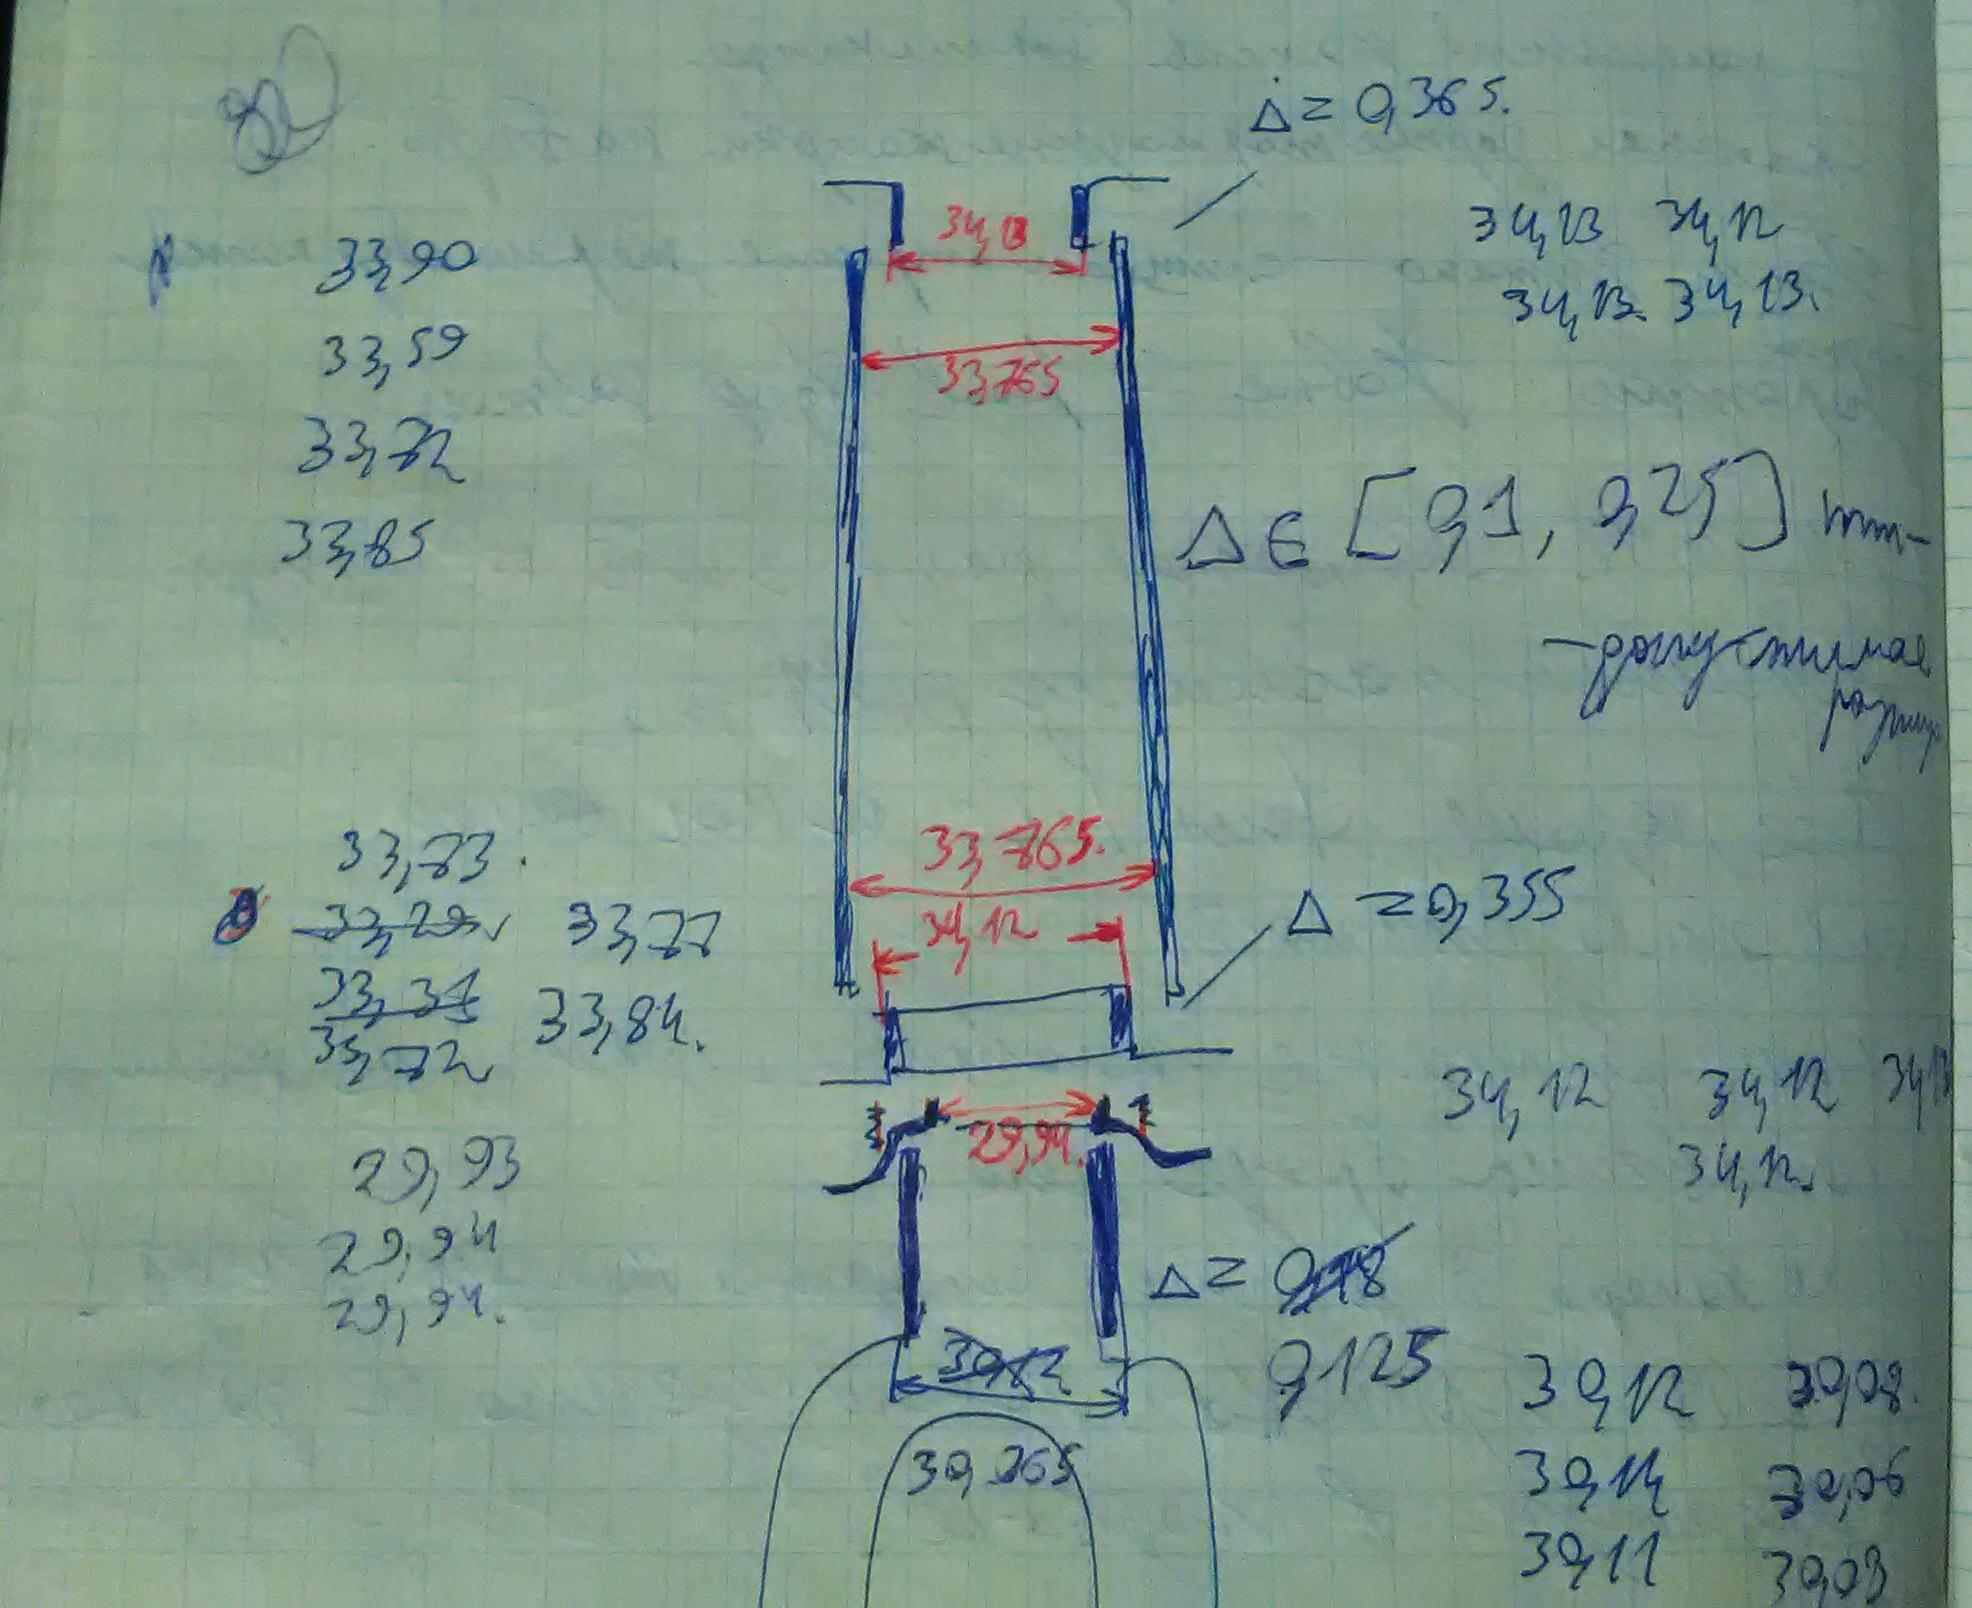 Δ = 0,365.
34,13 34,12
34,13. 34,13.
33,90
33,59
33,72
33,85
34,13
33,765
Δ ∈ [0,1, 0,25] mm-
-допустимая
разниц
33,73.
33,29 33,77
33,31 33,84.
33,72
33,765.
34,12
Δ = 0,355
34,12 34,12 34,13
34,12.
29,93
29,94
29,94.
29,94.
Δ = 0,18
0,125
30,12
30,065
30,12 30,08.
30,14 30,06
30,11 30,03